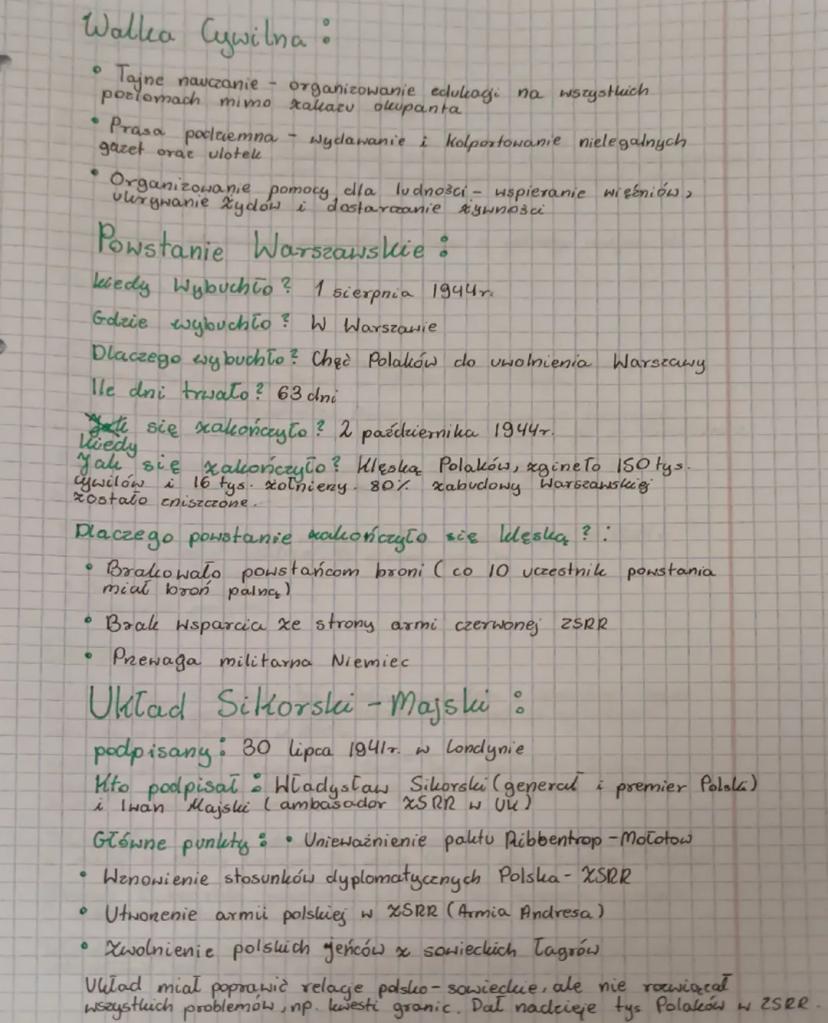 Walka Cywilna:
• Tajne nauczanie - organizowanie edukacji na wszystkich
poziomach mimo zakazu okupanta
• Prasa podziemna - wydawanie i kolportowanie nielegalnych
gazet oraz ulotek
• Organizowanie pomocy dla ludności - wspieranie więźniów,
ukrywanie żydów i dostarczanie żywności
Powstanie Warszawskie:
kiedy Wybuchło? 1 sierpnia 1944r.
Gdzie wybuchło? W Warszawie
Dlaczego wybuchło? Chęć Polaków do uwolnienia Warszawy
Ile dni trwało? 63 dni
się zakończyło? 2 października 1944r.
kiedy
Jak się zakończyło? Klęską Polaków, zgineło 150 tys.
cywilów i 16 tys. żołnierzy. 80% zabudowy Warszawskiej
zostało zniszczone.
Dlaczego powstanie zakończyło się klęską?:
• Brakowało powstańcom broni (co 10 uczestnik powstania
miał broń palną)
• Brak wsparcia ze strony armi czerwonej ZSRR
• Przewaga militarna Niemiec
Układ Sikorski - Majski:
podpisany: 30 lipca 1941r. w Londynie
Kto podpisał: Władysław Sikorski (generał i premier Polski)
i Iwan Majski (ambasador ZSRR w UK)
Główne punkty: • Unieważnienie paktu Ribbentrop - Mołotow
• Wznowienie stosunków dyplomatycznych Polska - ZSRR
• Utworzenie armii polskiej w ZSRR (Armia Andresa)
• Zwolnienie polskich jeńców z sowieckich łagrów
Układ miał poprawić relacje polsko - sowieckie, ale nie rozwiązał
wszystkich problemów, np. kwesti granic. Dał nadzieje tys Polaków w ZSRR.